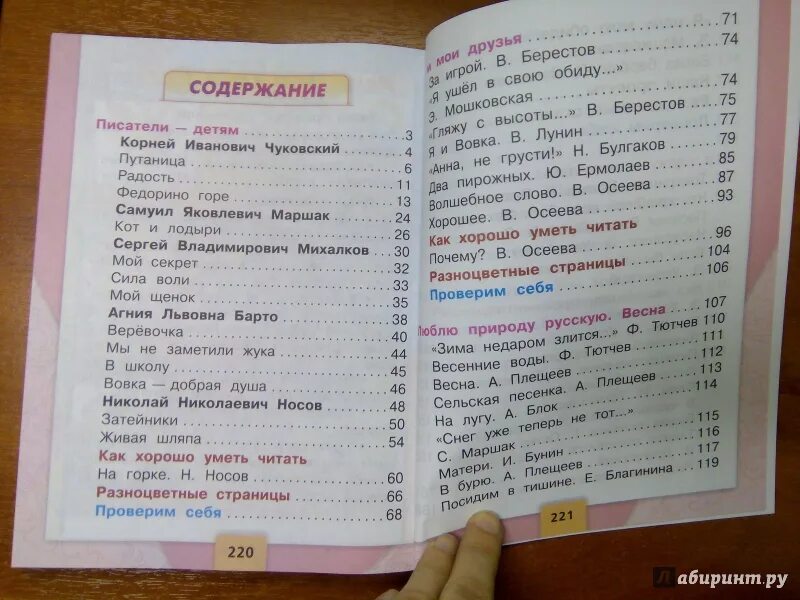 СОДЕРЖАНИЕ
Писатели — детям 3
Корней Иванович Чуковский 4
Путаница 6
Радость 11
Федорино горе 13
Самуил Яковлевич Маршак 24
Кот и лодыри 26
Сергей Владимирович Михалков 30
Мой секрет 32
Сила воли 33
Мой щенок 35
Агния Львовна Барто 38
Верёвочка 40
Мы не заметили жука 44
В школу 45
Вовка — добрая душа 46
Николай Николаевич Носов 48
Затейники 50
Живая шляпа 54
Как хорошо уметь читать
На горке. Н. Носов 60
Разноцветные страницы 66
Проверим себя 68
220
и мои друзья 71
За игрой. В. Берестов 74
«Я ушёл в свою обиду...»
Э. Мошковская 74
«Гляжу с высоты...» В. Берестов 75
Я и Вовка. В. Лунин 77
«Анна, не грусти!» Н. Булгаков 79
Два пирожных. Ю. Ермолаев 85
Волшебное слово. В. Осеева 87
Хорошее. В. Осеева 93
Как хорошо уметь читать
Почему? В. Осеева 96
Разноцветные страницы 104
Проверим себя 106
Люблю природу русскую. Весна 107
«Зима недаром злится...» Ф. Тютчев 110
Весенние воды. Ф. Тютчев 111
Весна. А. Плещеев 112
Сельская песенка. А. Плещеев 113
На лугу. А. Блок 114
«Снег уже теперь не тот...»
С. Маршак 115
Матери. И. Бунин 116
В бурю. А. Плещеев 117
Посидим в тишине. Е. Благинина 119
221
Лабиринт.ру